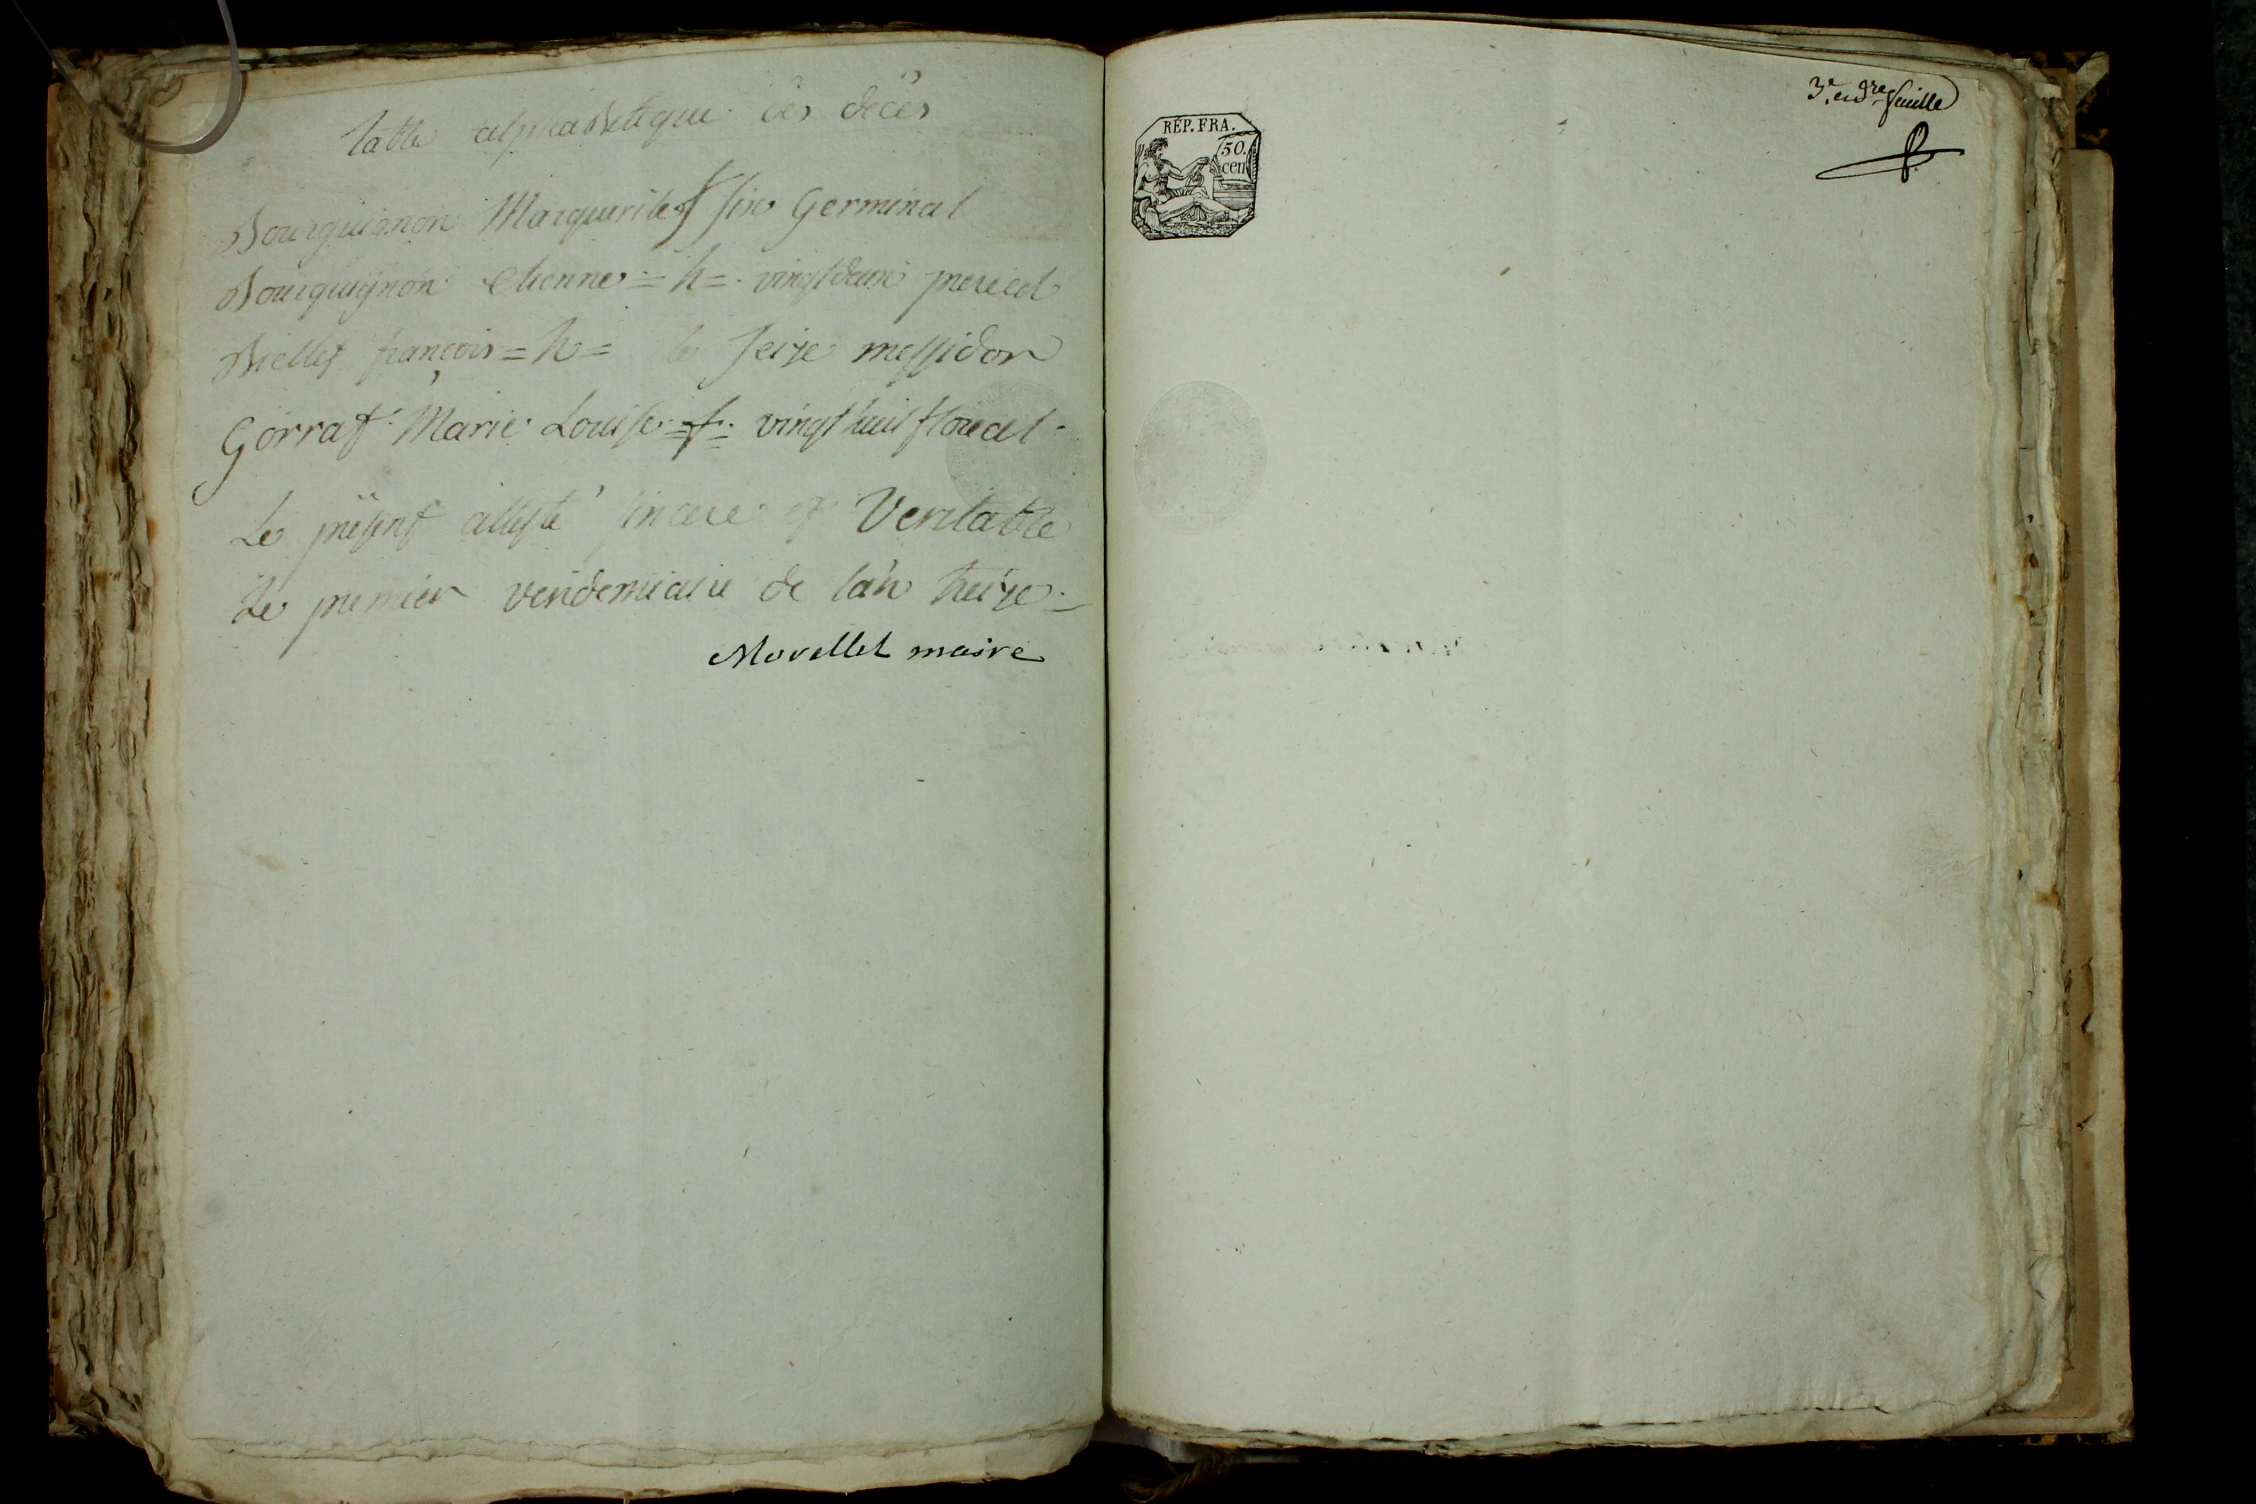 table alphabetique des decès
Bourguignon Marguerite f six Germinal
Bourguignon etienne = h = vingt deux prereal
Biellet françois = h = le seize messidor
Gorrat Marie Louise = f = vingt huit floreal
Le présent attesté sincere et Veritable
Le premier vendemiaire de l'an treize
Morellet maire
RÉP. FRA.
50.
cen
3e. et dre feuille